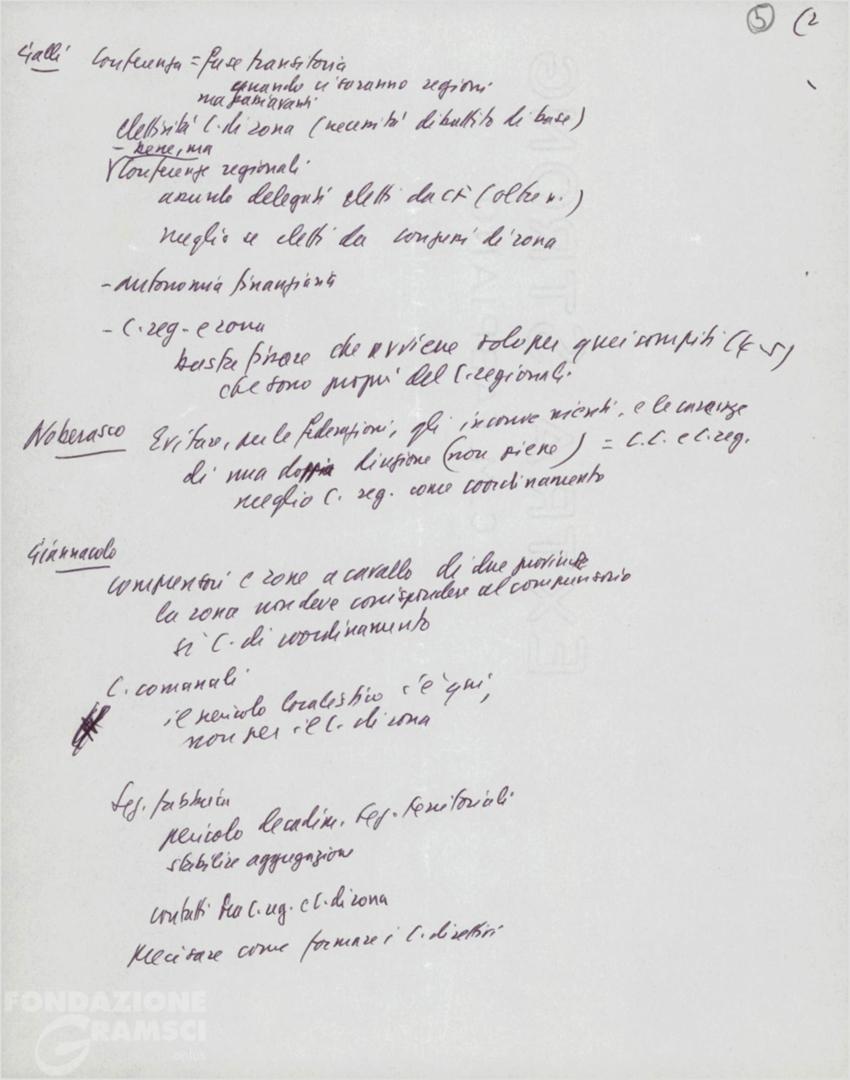 5 (2
Galli Conferenza = fase transitoria
quando ci saranno regioni
ma
elettività C. di zona (necessità dibattito di base)
- bene, ma
Conferenze regionali
assurdo delegati eletti da CF (oltre n.)
meglio se eletti da congressi di zona
- autonomia finanziaria
- C. reg. e zona
basta fissare che avviene solo per quei compiti (4-5)
che sono propri del C. regionali
Noberasco Evitare, per le federazioni, gli inconvenienti, e le carenze
di una doppia direzione (non piene) = C.C. e C. reg.
meglio C. reg. come coordinamento
Giannacolo
comprensori e zone a cavallo di due province
la zona non deve corrispondere al comprensorio
sì C. di coordinamento
C. comunali
il pericolo localistico c'è qui,
non per il C. di zona
Seg. fabbrica
pericolo decadim. seg. territoriali
stabilire aggregazione
contatti tra C. reg. e C. di zona
precisare come formare i C. direttivi
FONDAZIONE
GRAMSCI
onlus